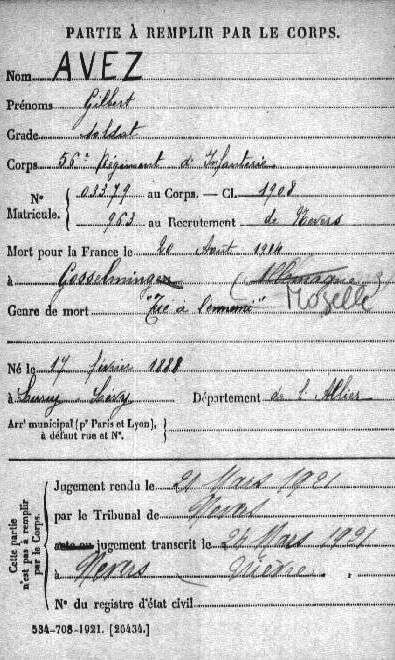 PARTIE À REMPLIR PAR LE CORPS.
Nom AVEZ
Prénoms Gilbert
Grade soldat
Corps 56e Régiment d'Infanterie
N° Matricule. { 03379 au Corps. — Cl. 1908
963 au Recrutement de Nevers
Mort pour la France le 20 Août 1914
à Gosselmingen (Allemagne)
Moselle
Genre de mort "Tué à l'ennemi"
Né le 17 février 1888
à Lurcy Lévy Département de l'Allier
Arrt municipal (pr Paris et Lyon), à défaut rue et N°. }
Cette partie n'est pas à remplir par le Corps.
Jugement rendu le 21 Mars 1921
par le Tribunal de Nevers
acte ou jugement transcrit le 24 Mars 1921
à Nevers Nièvre
N° du registre d'état civil
534-708-1921. [26434.]